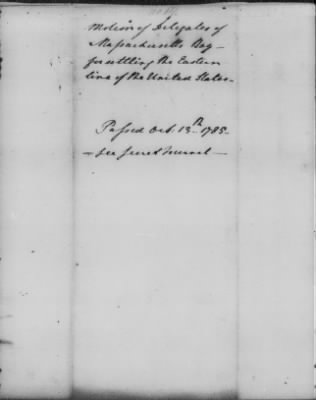 Motion of Delegates of
Massachusetts Bay –
for settling the Eastern
line of the United States –
Passed Oct. 13th 1785 –
– see Secret Journal –